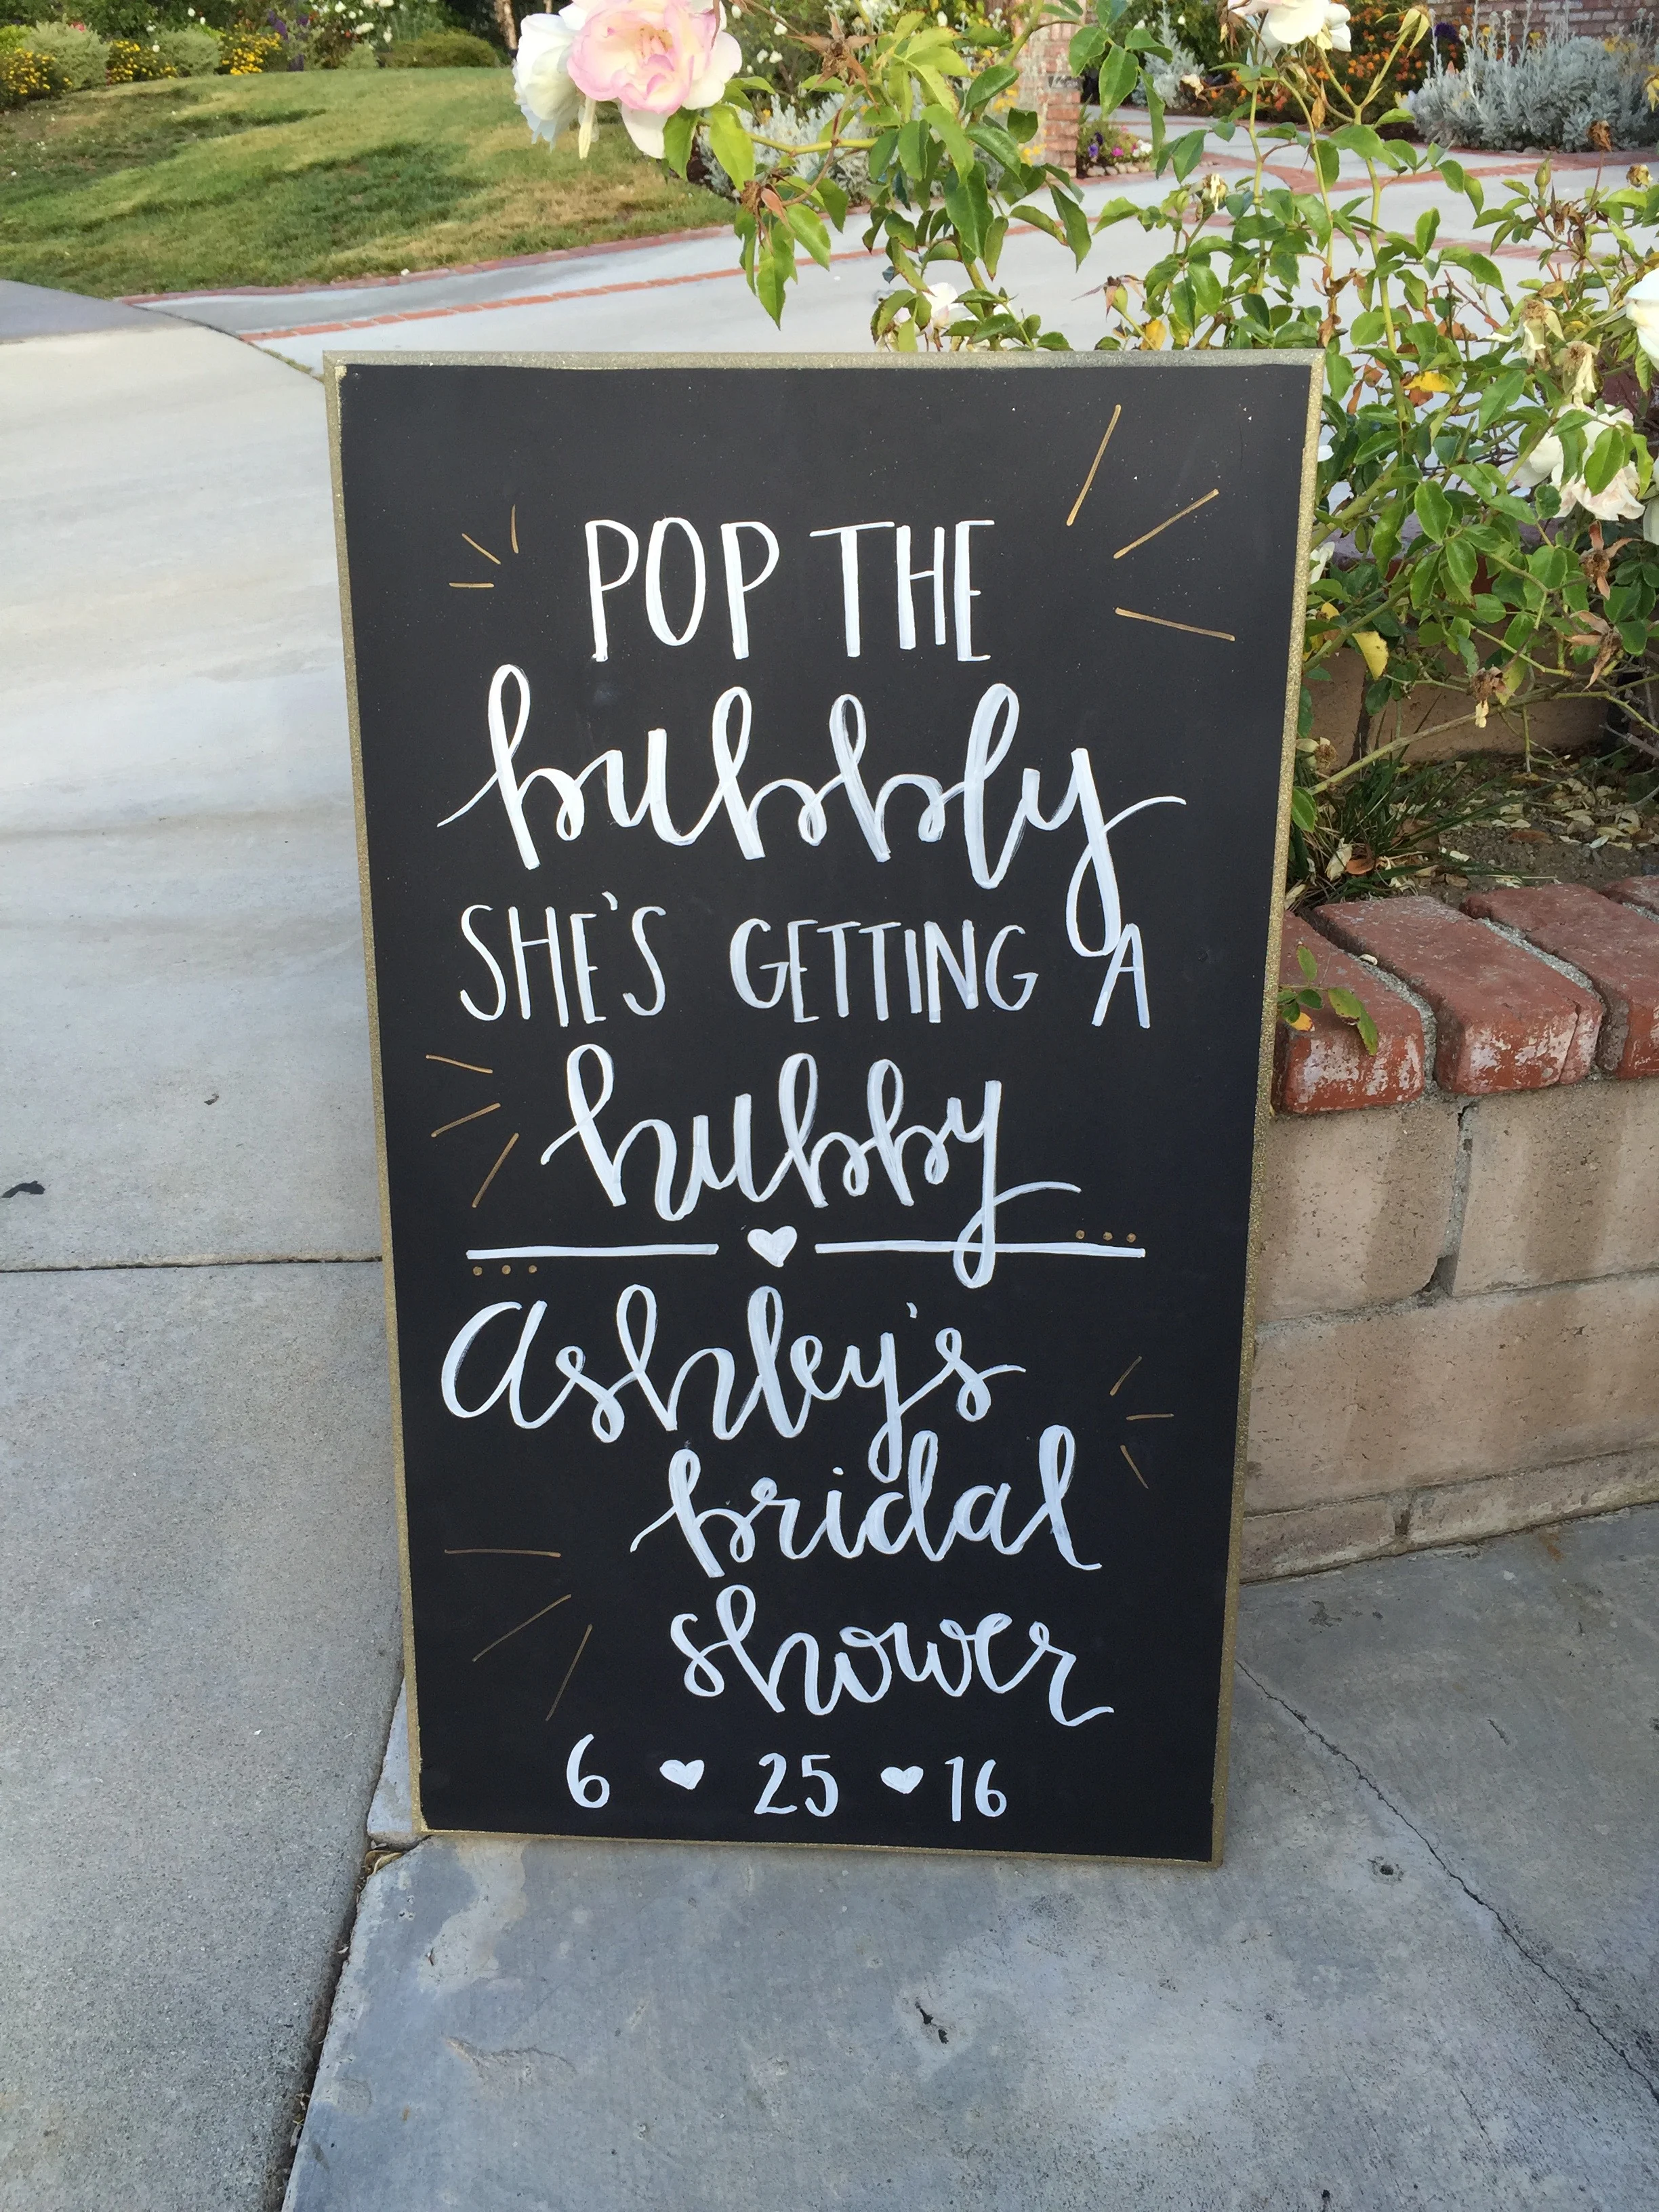 POP THE
bubbly
SHE'S GETTING A
hubby
Ashley's
bridal
shower
6 ♥ 25 ♥ 16